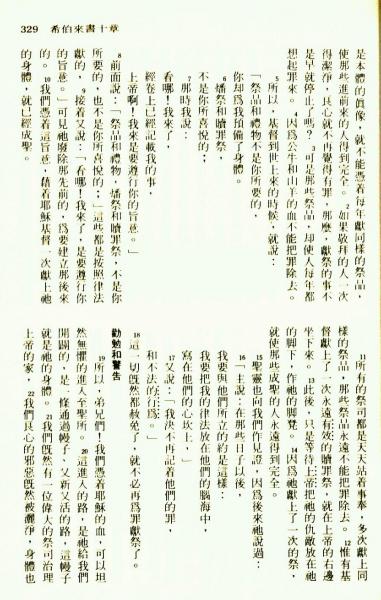 329　希伯來書十章
是本體的眞像，就不能憑着每年獻同樣的祭品，
使那些進前來的人得到完全。2如果敬拜的人一次
得潔淨，良心就不再覺得有罪，那麼，獻祭的事不
是早就停止了嗎？3可是那些祭品，却使人每年都
想起罪來。4因爲公牛和山羊的血不能把罪除去。
5所以，基督到世上來的時候，就說：
「祭品和禮物不是你所要的，
你却爲我預備了身體。
6燔祭和贖罪祭，
不是你所喜悅的；
7那時我說：
看哪！我來了，
經卷上已經記載我的事，
上帝啊！我來是要遵行你的旨意。」
8前面說：「祭品和禮物，燔祭和贖罪祭，不是你
所要的，也不是你所喜悅的；」這些都是按照律法
獻的，9接着又說：「看哪！我來了，是要遵行你
的旨意。」可見祂廢除那先前的，爲要建立那後來
的。10我們憑着這旨意，藉着耶穌基督一次獻上祂
的身體，就已經成聖。
11所有的祭司都是天天站着事奉，多次獻上同
樣的祭品，那些祭品永遠不能把罪除去。12惟有基
督獻上了一次永遠有效的贖罪祭，就在上帝的右邊
坐下來。13此後，只是等待上帝把祂的仇敵放在祂
的脚下，作祂的脚凳。14因爲祂獻上了一次的祭，
就使那些成聖的人永遠得到完全。
15聖靈也向我們作見證，因爲後來祂說過：
16「主說：在那些日子以後，
我要與他們所立的約是這樣：
我要把我的律法放在他們的腦海中，
寫在他們的心坎上，」
17又說：「我決不再記着他們的罪，
和不法的行爲。」
18這一切旣然都赦免了，就不必再爲罪獻祭了。
勸勉和警告
19所以，弟兄們！我們憑着耶穌的血，可以坦
然無懼的進入至聖所。20這進入的路，是祂給我們
開闢的，是一條通過幔子、又新又活的路，這幔子
就是祂的身體。21我們旣然有一位偉大的祭司治理
上帝的家，22我們良心的邪惡旣然被灑淨，身體也